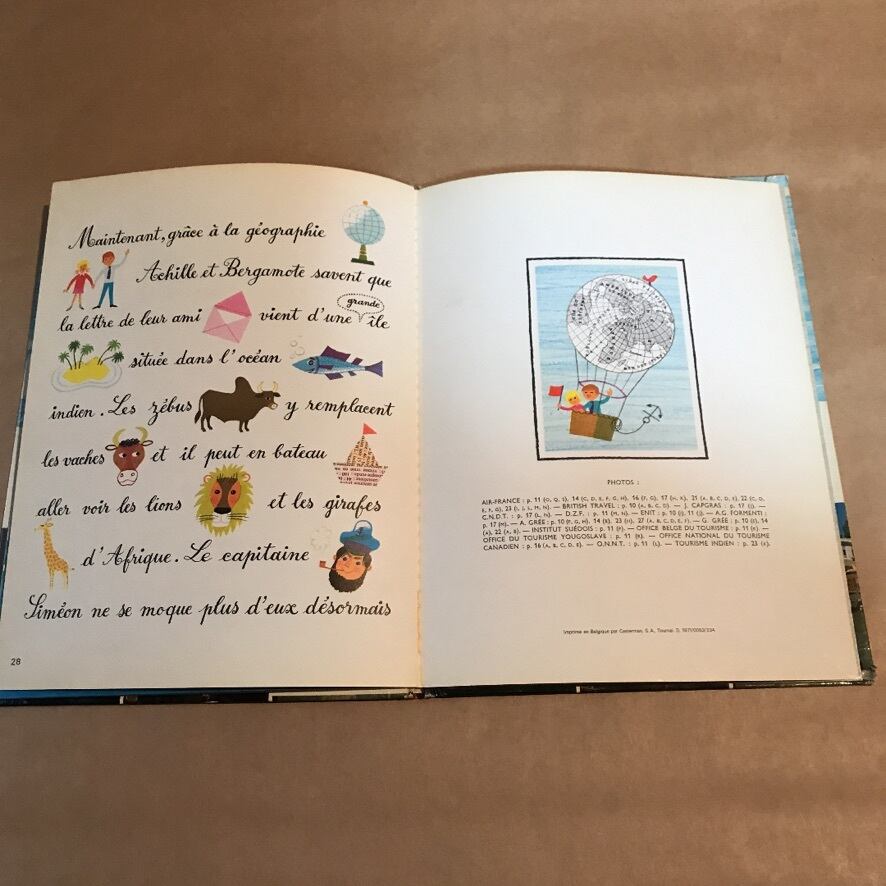 Maintenant, grâce à la géographie
Achille et Bergamote savent que
la lettre de leur ami vient d'une grande île
située dans l'océan
indien. Les zébus y remplacent
les vaches et il peut en bateau
aller voir les lions et les girafes
d'Afrique. Le capitaine
Siméon ne se moque plus d'eux désormais
28
PHOTOS :
AIR-FRANCE : p. 11 (O, Q, S), 14 (C, D, E, F, G, H), 16 (F, G), 17 (H, K), 21 (A, B, C, D, E), 22 (C, D,
E, F, G), 23 (I, J, L, M, N). — BRITISH TRAVEL : p. 10 (A, B, C, D). — J. CAPGRAS : p. 17 (J). —
C.N.D.T. : p. 17 (L, N). — D.Z.F. : p. 11 (M, N). — ENIT : p. 10 (I), 11 (J). — A.G. FORMENTI :
p. 17 (M). — A. GRÉE : p. 10 (F, G, H), 14 (B), 23 (H), 27 (A, B, C, D, E, F). — G. GRÉE : p. 10 (E), 14
(A), 22 (A, B). — INSTITUT SUÉDOIS : p. 11 (P). — OFFICE BELGE DU TOURISME : p. 11 (K) —
OFFICE DU TOURISME YOUGOSLAVE : p. 11 (R). — OFFICE NATIONAL DU TOURISME
CANADIEN : p. 16 (A, B, C, D, E). — O.N.N.T. : p. 11 (L). — TOURISME INDIEN : p. 23 (K).
Imprimé en Belgique par Casterman, S.A., Tournai. D. 1971/0053/234.